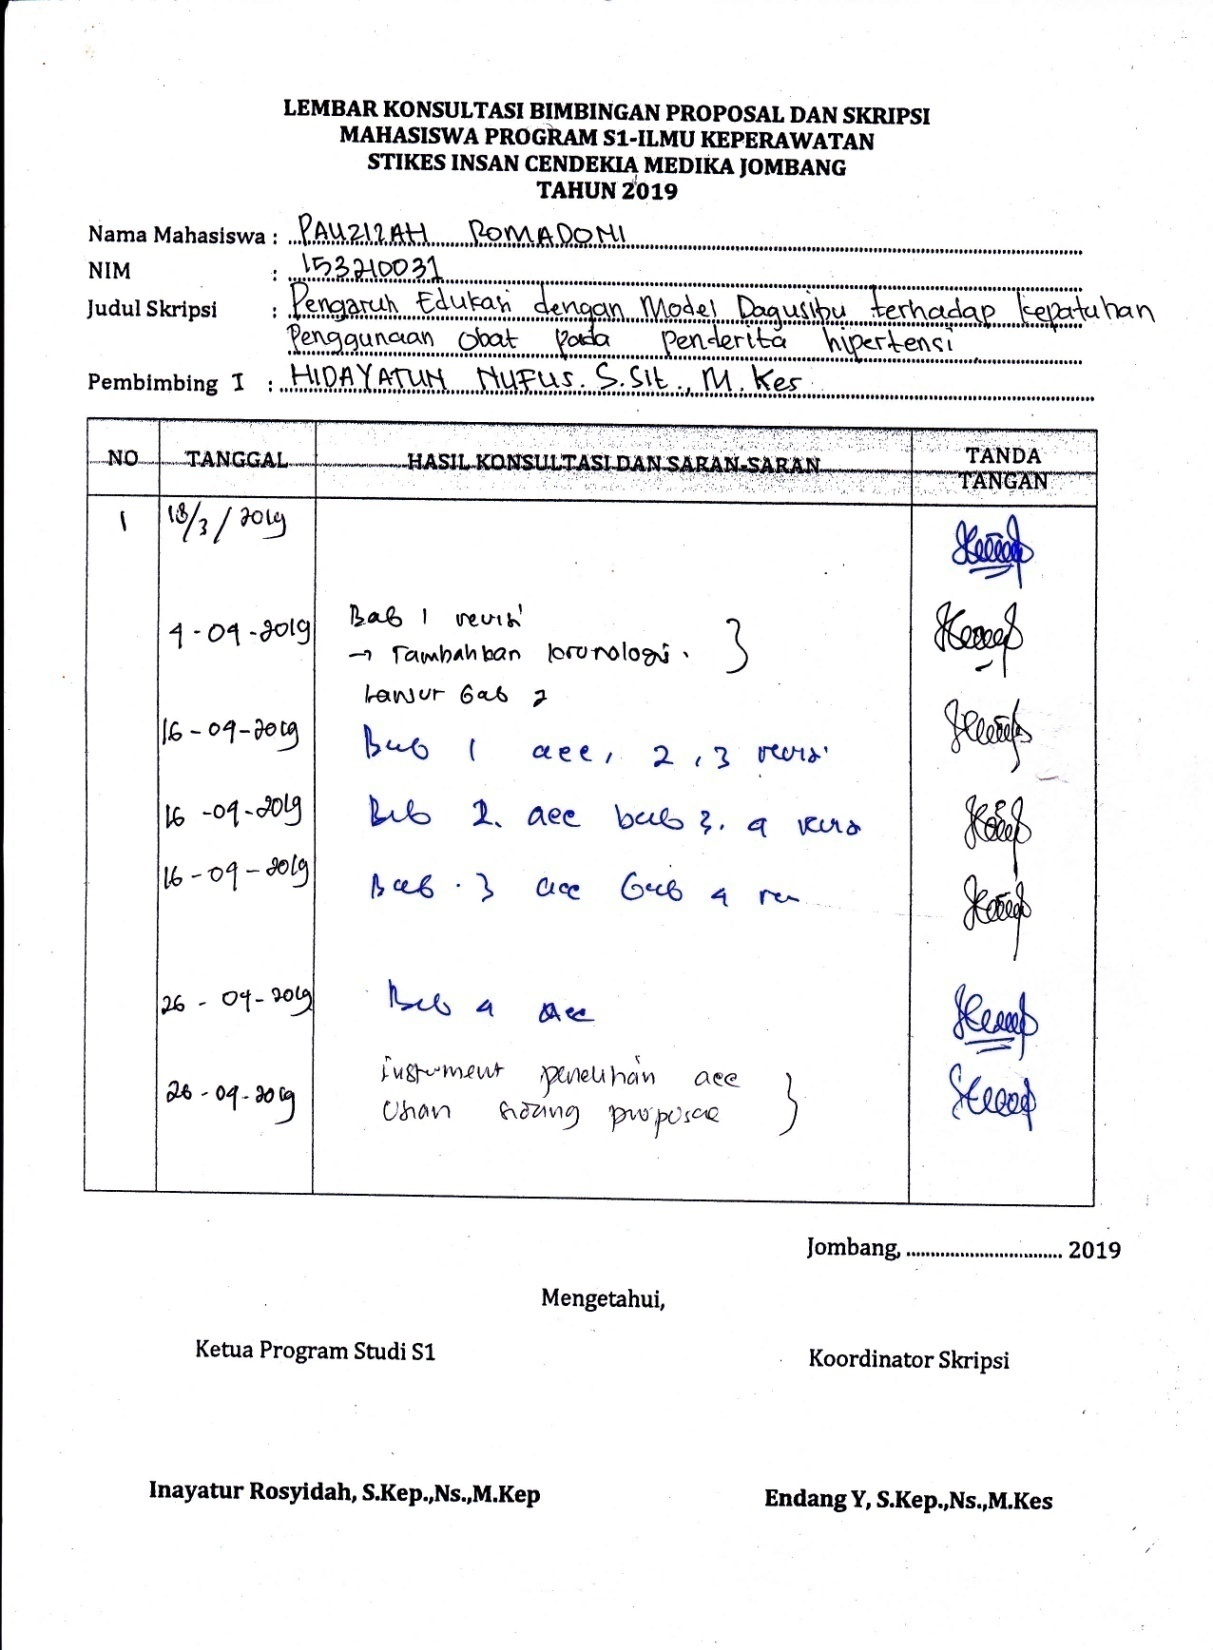 LEMBAR KONSULTASI BIMBINGAN PROPOSAL DAN SKRIPSI
MAHASISWA PROGRAM S1-ILMU KEPERAWATAN
STIKES INSAN CENDEKIA MEDIKA JOMBANG
TAHUN 2019
Nama Mahasiswa : PAUZIZAH ROMADONI
NIM : 153210031
Judul Skripsi : Pengaruh Edukasi dengan Model Dagusibu terhadap kepatuhan
Penggunaan Obat pada penderita hipertensi
Pembimbing I : HIDAYATUN NUFUS. S.Sit., M.Kes
NO TANGGAL HASIL KONSULTASI DAN SARAN-SARAN TANDA TANGAN
1 18/3/2019
4-04-2019 Bab 1 revisi
→ Tambahkan kronologi.
Lanjut bab 2
16-04-2019 Bab 1 acc, 2, 3 revisi
16-04-2019 Bab 2. acc bab 3. 4 revisi
16-04-2019 Bab. 3 acc bab 4 rev
26-04-2019 Bab 4 acc
26-04-2019 instrument penelitian acc
sidang proposal
Jombang, .............................. 2019
Mengetahui,
Ketua Program Studi S1 Koordinator Skripsi
Inayatur Rosyidah, S.Kep.,Ns.,M.Kep Endang Y, S.Kep.,Ns.,M.Kes